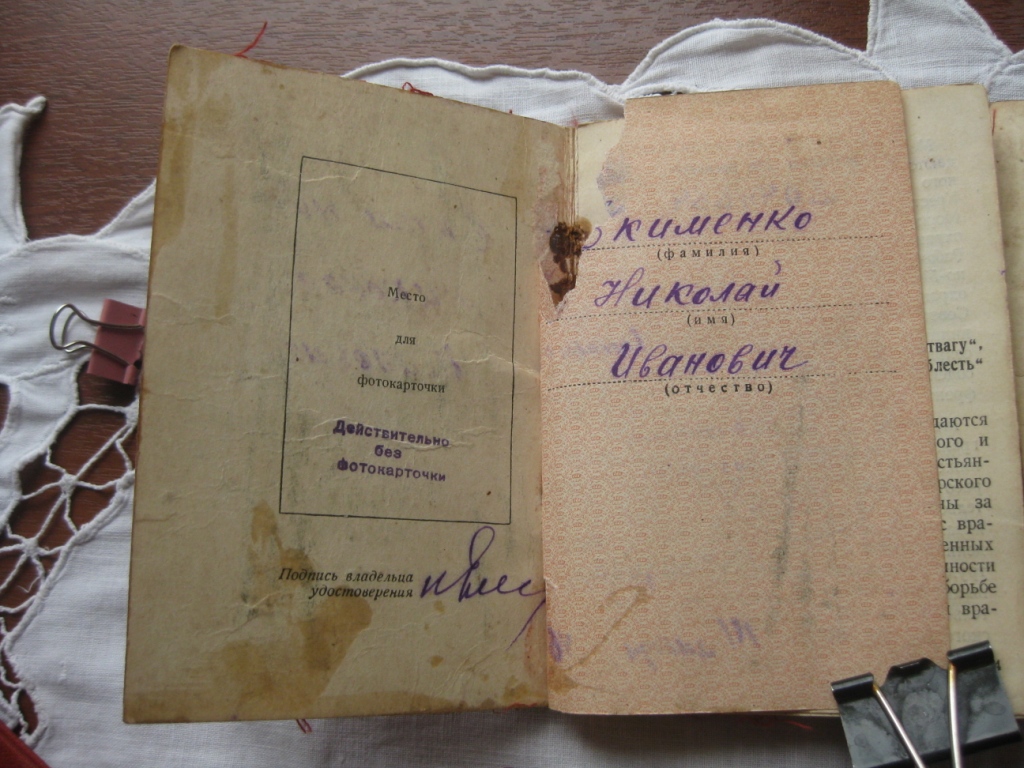 Место
для
фотокарточки
Действительно
без
фотокарточки
Подпись владельца
удостоверения
кименко
(фамилия)
Николай
(имя)
Иванович
(отчество)
твагу“,
блесть“
даются
ого и
стьян-
рского
ны за
с вра-
енных
нности
орьбе
вра-